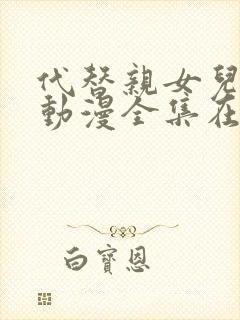 代替親女兒
動漫全集在
白寶恩